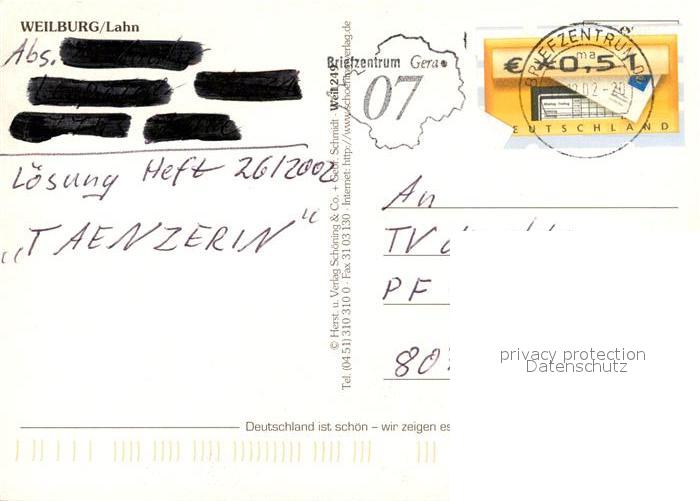 WEILBURG/Lahn
Abs.
Lösung Heft 26/2002
„TAENZERIN"
© Herst. u. Verlag Schöning & Co. + Gebr. Schmidt · Weil 249
Tel. (04 51) 310 310 0 · Fax 31 03 130 · Internet: http://www.schoening-verlag.de
Briefzentrum Gera
07
BRIEFZENTRUM
ma
€ *0,51
02-20
DEUTSCHLAND
An
TV
PF
80
privacy protection
Datenschutz
Deutschland ist schön – wir zeigen es